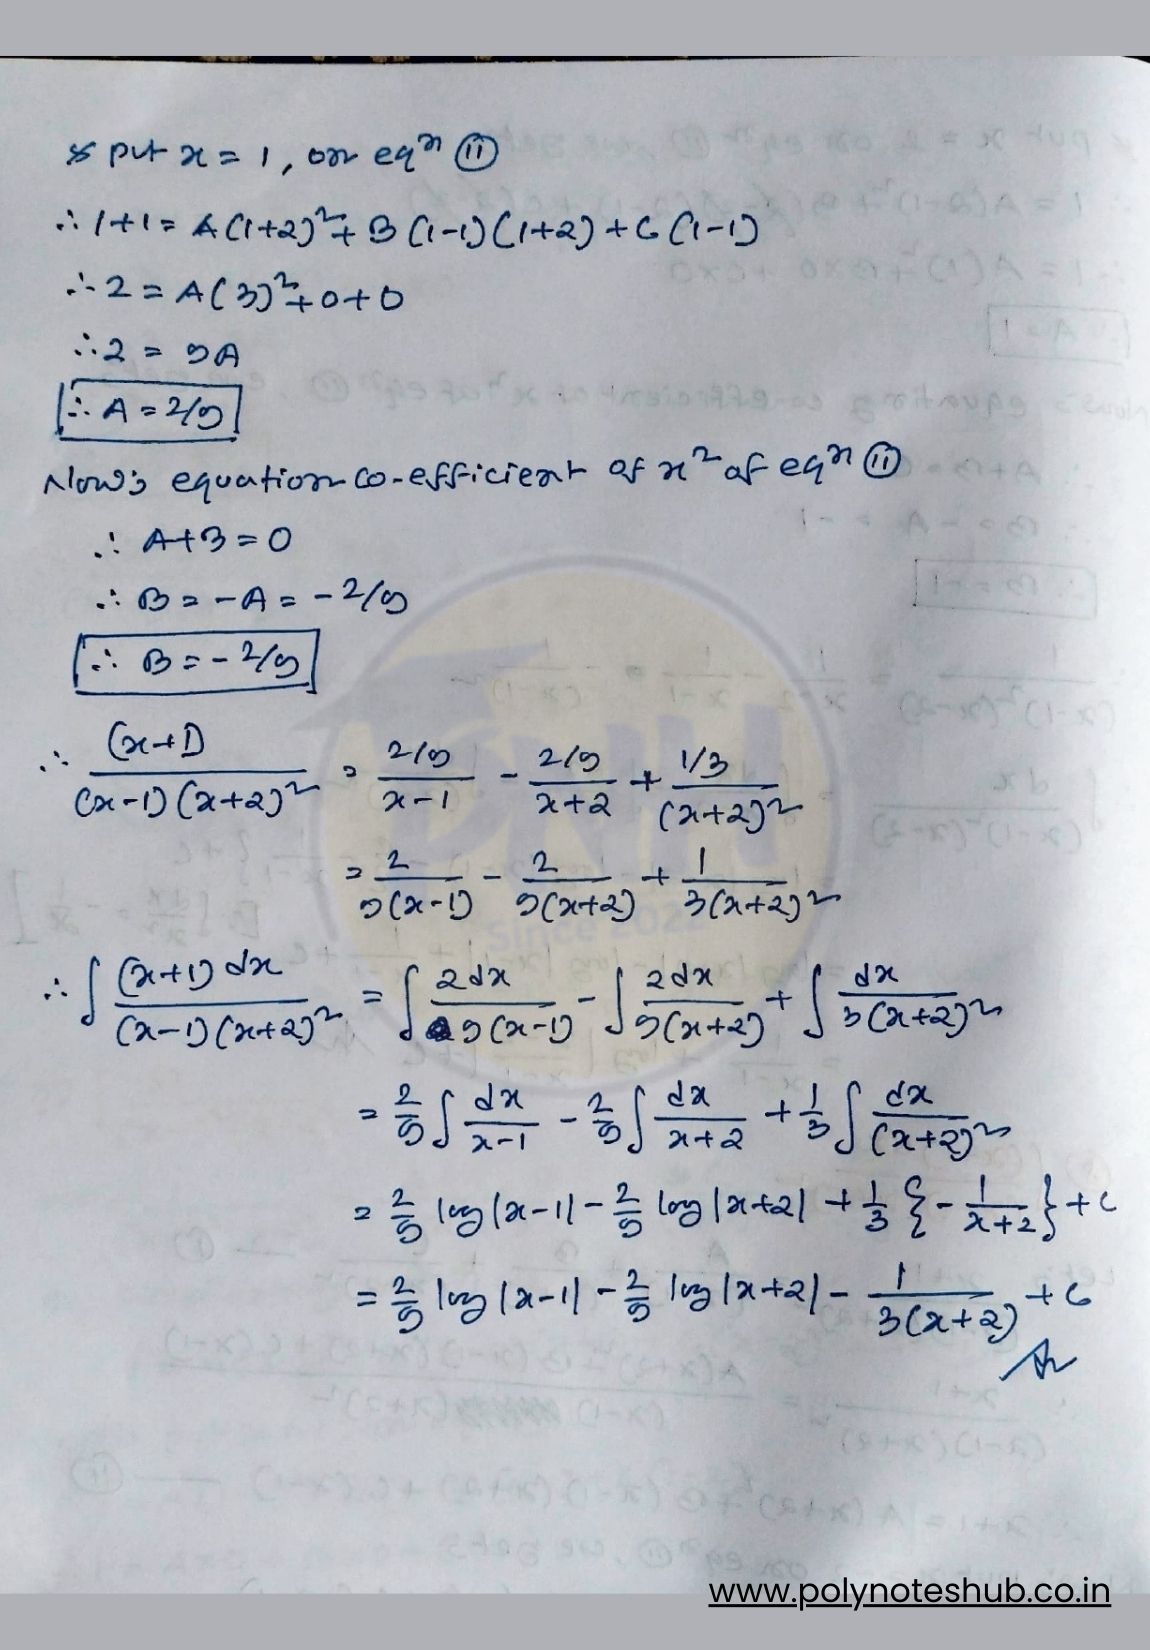 * put x = 1, on eqⁿ ⑪
∴ 1+1 = A(1+2)² + B(1-1)(1+2) + C(1-1)
∴ 2 = A(3)² + 0 + 0
∴ 2 = 9A
∴ A = 2/9
Now; equation co-efficient of x² of eqⁿ ⑪
∴ A+B = 0
∴ B = -A = -2/9
∴ B = -2/9
∴ (x+1)/((x-1)(x+2)²) = (2/9)/(x-1) - (2/9)/(x+2) + (1/3)/(x+2)²
= 2/(9(x-1)) - 2/(9(x+2)) + 1/(3(x+2)²)
∴ ∫ (x+1)dx/((x-1)(x+2)²) = ∫ 2dx/(9(x-1)) - ∫ 2dx/(9(x+2)) + ∫ dx/(3(x+2)²)
= 2/9 ∫ dx/(x-1) - 2/9 ∫ dx/(x+2) + 1/3 ∫ dx/(x+2)²
= 2/9 log|x-1| - 2/9 log|x+2| + 1/3 {-1/(x+2)} + C
= 2/9 log|x-1| - 2/9 log|x+2| - 1/(3(x+2)) + C
PNH
Since 2022
www.polynoteshub.co.in